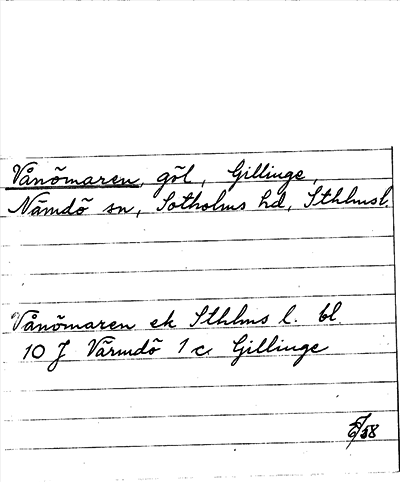 Vånömaren, göl, Gillinge,
Nämdö sn, Sotholms hd, Sthlmsl.
Vånömaren ek Sthlms l. bl.
10 J Värmdö 1 c. Gillinge